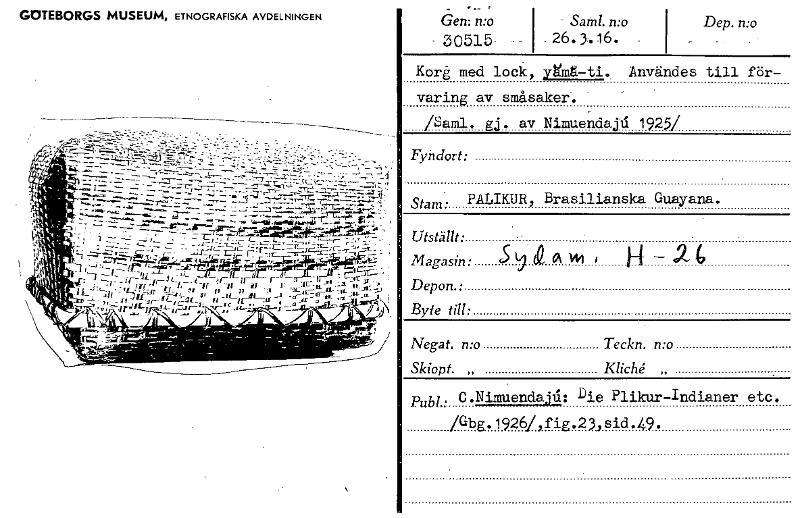 GÖTEBORGS MUSEUM, ETNOGRAFISKA AVDELNINGEN
Gen: n:o Saml. n:o Dep. n:o
30515 26.3.16.
Korg med lock, yămă-ti. Användes till för-
varing av småsaker.
/Saml. gj. av Nimuendajú 1925/
Fyndort:
Stam: PALIKUR, Brasilianska Guayana.
Utställt:
Magasin: Sydam. H-26
Depon.:
Byte till:
Negat. n:o Teckn. n:o
Skiopt. „ Kliché „
Publ.: C.Nimuendajú: Die Plikur-Indianer etc.
/Gbg.1926/,fig.23,sid.49.